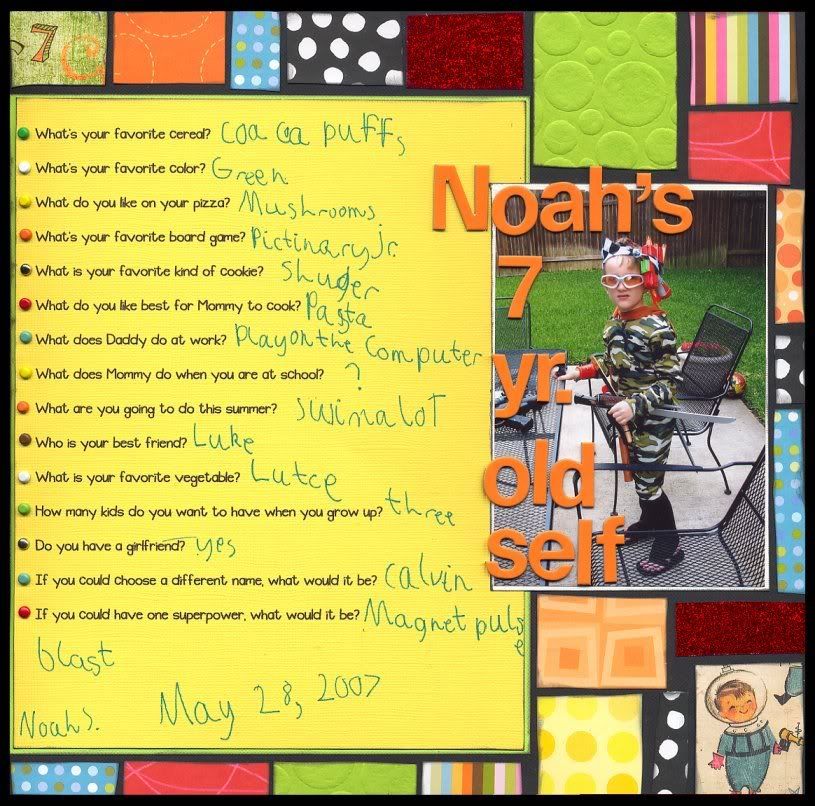 7
What's your favorite cereal? Coa Coa puffs
What's your favorite color? Green
What do you like on your pizza? Mushrooms
What's your favorite board game? Pictinary jr.
What is your favorite kind of cookie? Shuger
What do you like best for Mommy to cook? Pasta
What does Daddy do at work? Play on the Computer
What does Mommy do when you are at school? ?
What are you going to do this summer? Swin a loT
Who is your best friend? Luke
What is your favorite vegetable? Lutce
How many kids do you want to have when you grow up? three
Do you have a girlfriend? yes
If you could choose a different name, what would it be? Calvin
If you could have one superpower, what would it be? Magnet pulse
blast
Noah S. May 28, 2007
Noah's
7
yr.
old
self